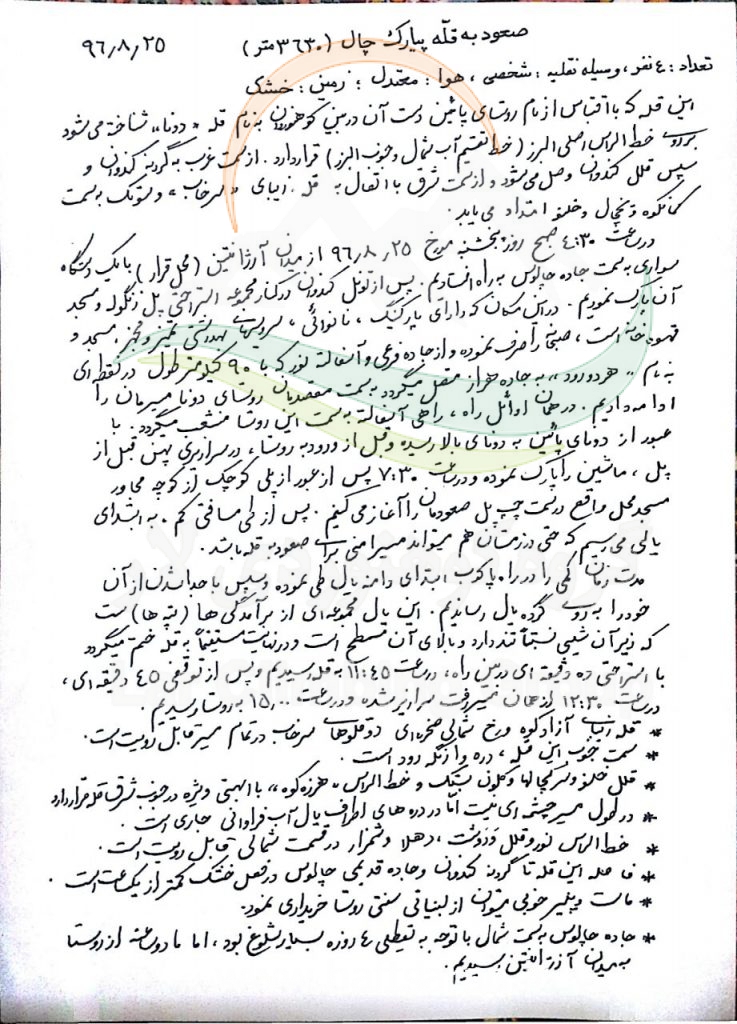 صعود به قلّه پیازک چال (۳۶۳۰ متر) ۹۶٫۸٫۲۵
تعداد: ٤ نفر، وسیله نقلیه: شخصی، هوا: معتدل؛ زمین: خشک
این قله که با اقتباس از نام روستای پائین دست آن در بین کوهنوردان به نام قله «دونا» شناخته می‌شود
بر روی خط الراس اصلی البرز (خط تقسیم آب شمال و جنوب البرز) قرار دارد. از سمت غرب به گردنه کندوان و
سپس قلل کندوان وصل می‌شود و از سمت شرق با اتصال به قله زیبای «سرخاب» و ستونک به سمت
کمانکوه و یخچال و خلنو امتداد می‌یابد.
در ساعت ٤:۳۰ صبح روز پنجشنبه مورخ ۹۶٫۸٫۲۵ از میدان آرژانتین (محل قرار) با یک دستگاه
سواری به سمت جاده چالوس به راه افتادیم. پس از تونل کندوان در کنار مجموعه استراحتی پل زنگوله و مسجد
آن پارک نمودیم. در این مکان که دارای پارکینگ، نانوائی، سرویسهای بهداشتی تمیز و مجهز، مسجد و
قهوه خانه است، صبحانه را صرف نموده و از جاده فرعی و آسفالته نور که با ۹۰ کیلومتر طول در نقطه‌ای
به نام «هردورود» به جاده هراز متصل میگردد به سمت مقصدمان روستای دونا مسیرمان را
ادامه دادیم. در همان اوائل راه، راهی آسفالته به سمت این روستا منشعب میگردد. با
عبور از دونای پائین به دونای بالا رسیده و قبل از ورود به روستا، در سرازیری پهن قبل از
پل، ماشین را پارک نموده و در ساعت ۷:۳۰ پس از عبور از پلی کوچک از کوچه مجاور
مسجد محل واقع در سمت چپ پل صعودمان را آغاز می‌کنیم. پس از طی مسافتی کم، به ابتدای
یالی می‌رسیم که حتی در زمستان هم میتواند مسیر امنی برای صعود به قله باشد.
مدت زمان کمی را در راه پاکوب ابتدای دامنه یال طی نموده و سپس با جدا شدن از آن
خود را به روی گرده یال رساندیم. این یال مجموعه‌ای از برآمدگی ها (تپه ها) ست
که زیر آن شیبی نسبتاً تند دارد و بالای آن مسطح است و در نهایت مستقیماً به قله ختم میگردد
با استراحتی ده دقیقه ای در بین راه، در ساعت ۱۱:٤٥ به قله رسیدیم و پس از توقفی ٤٥ دقیقه‌ای،
در ساعت ۱۲:۳۰ از همان مسیر رفت سرازیر شده و در ساعت ۱۵٫۰۰ به روستا رسیدیم.
* قله زیبای آزادکوه و رخ شمالی صخره‌ای دوقلوهای سرخاب در تمام مسیر قابل رویت است.
* سمت جنوب این قله، دره وارنگه رود است.
* قلل خلنو و سرکچالها و کلون بستک و خط الراس «هرزه کوه» با ابهتی ویژه در جنوب شرق قله قرار دارد
* در طول مسیر چشمه ای نیست امّا در دره های اطراف یال آب فراوانی جاری است.
* خط الراس نور و قلل وَرَوَشت، دهلا و شمزار در قسمت شمالی قابل رویت است.
* فاصله این قله تا گردنه کندوان و جاده قدیمی چالوس در فصل خشک کمتر از یک ساعت است.
* ماست و پنیر خوبی میتوان از لبنیاتی سنتی روستا خریداری نمود.
* جاده چالوس به سمت شمال با توجه به تعطیلی ٤ روزه بسیار شلوغ بود، اما ما دو ساعته از روستا
به میدان آرژانتین رسیدیم.